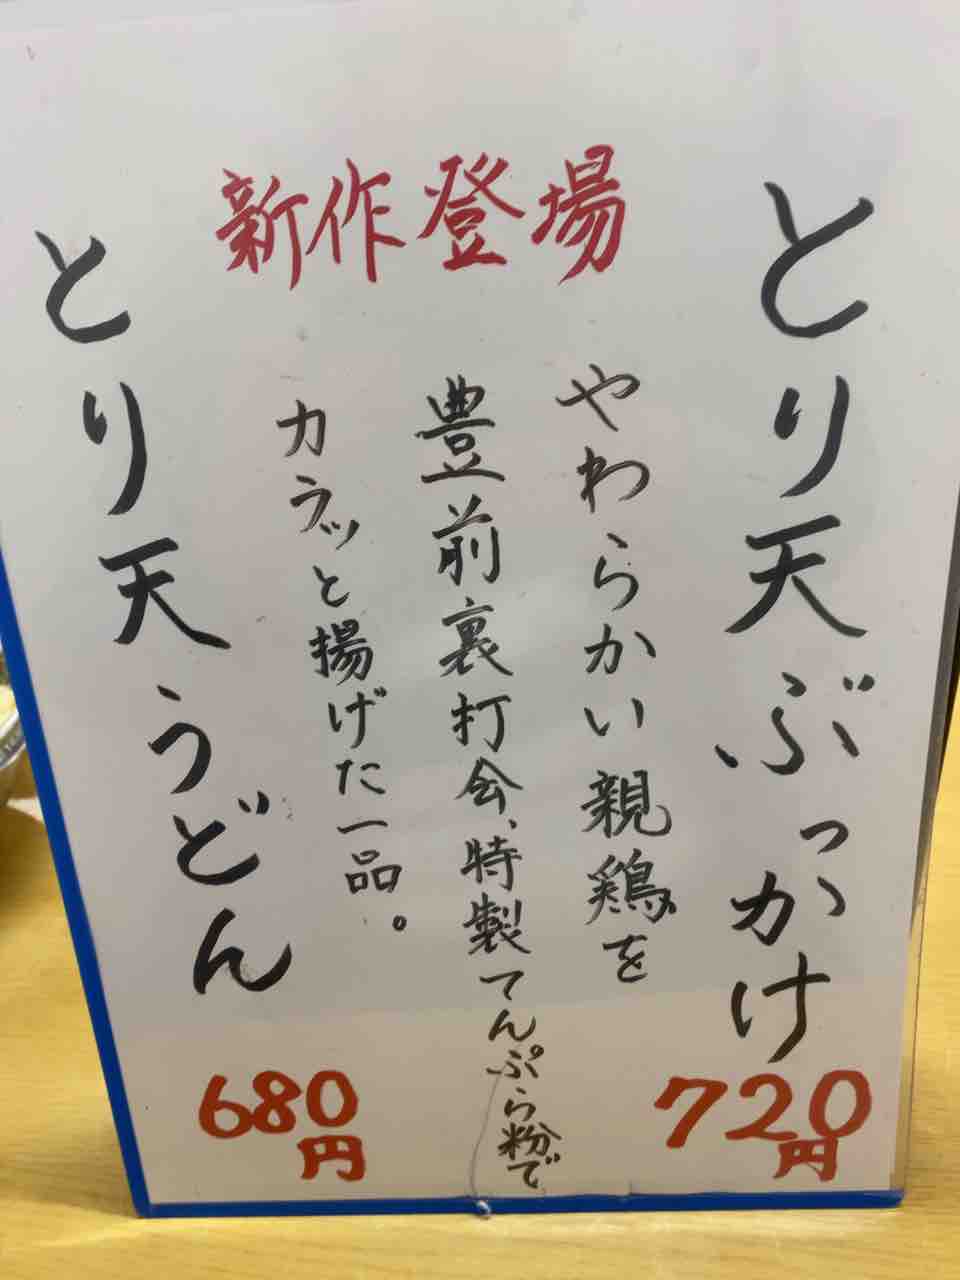 新作登場
とり天ぶっかけ
720円
やわらかい親鶏を
豊前裏打会、特製てんぷら粉で
カラッと揚げた一品。
とり天うどん
680円